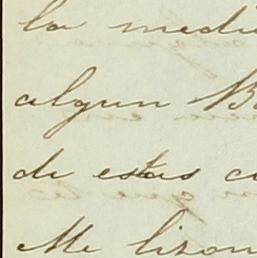 la medi
algun B
de estas c
Me lison